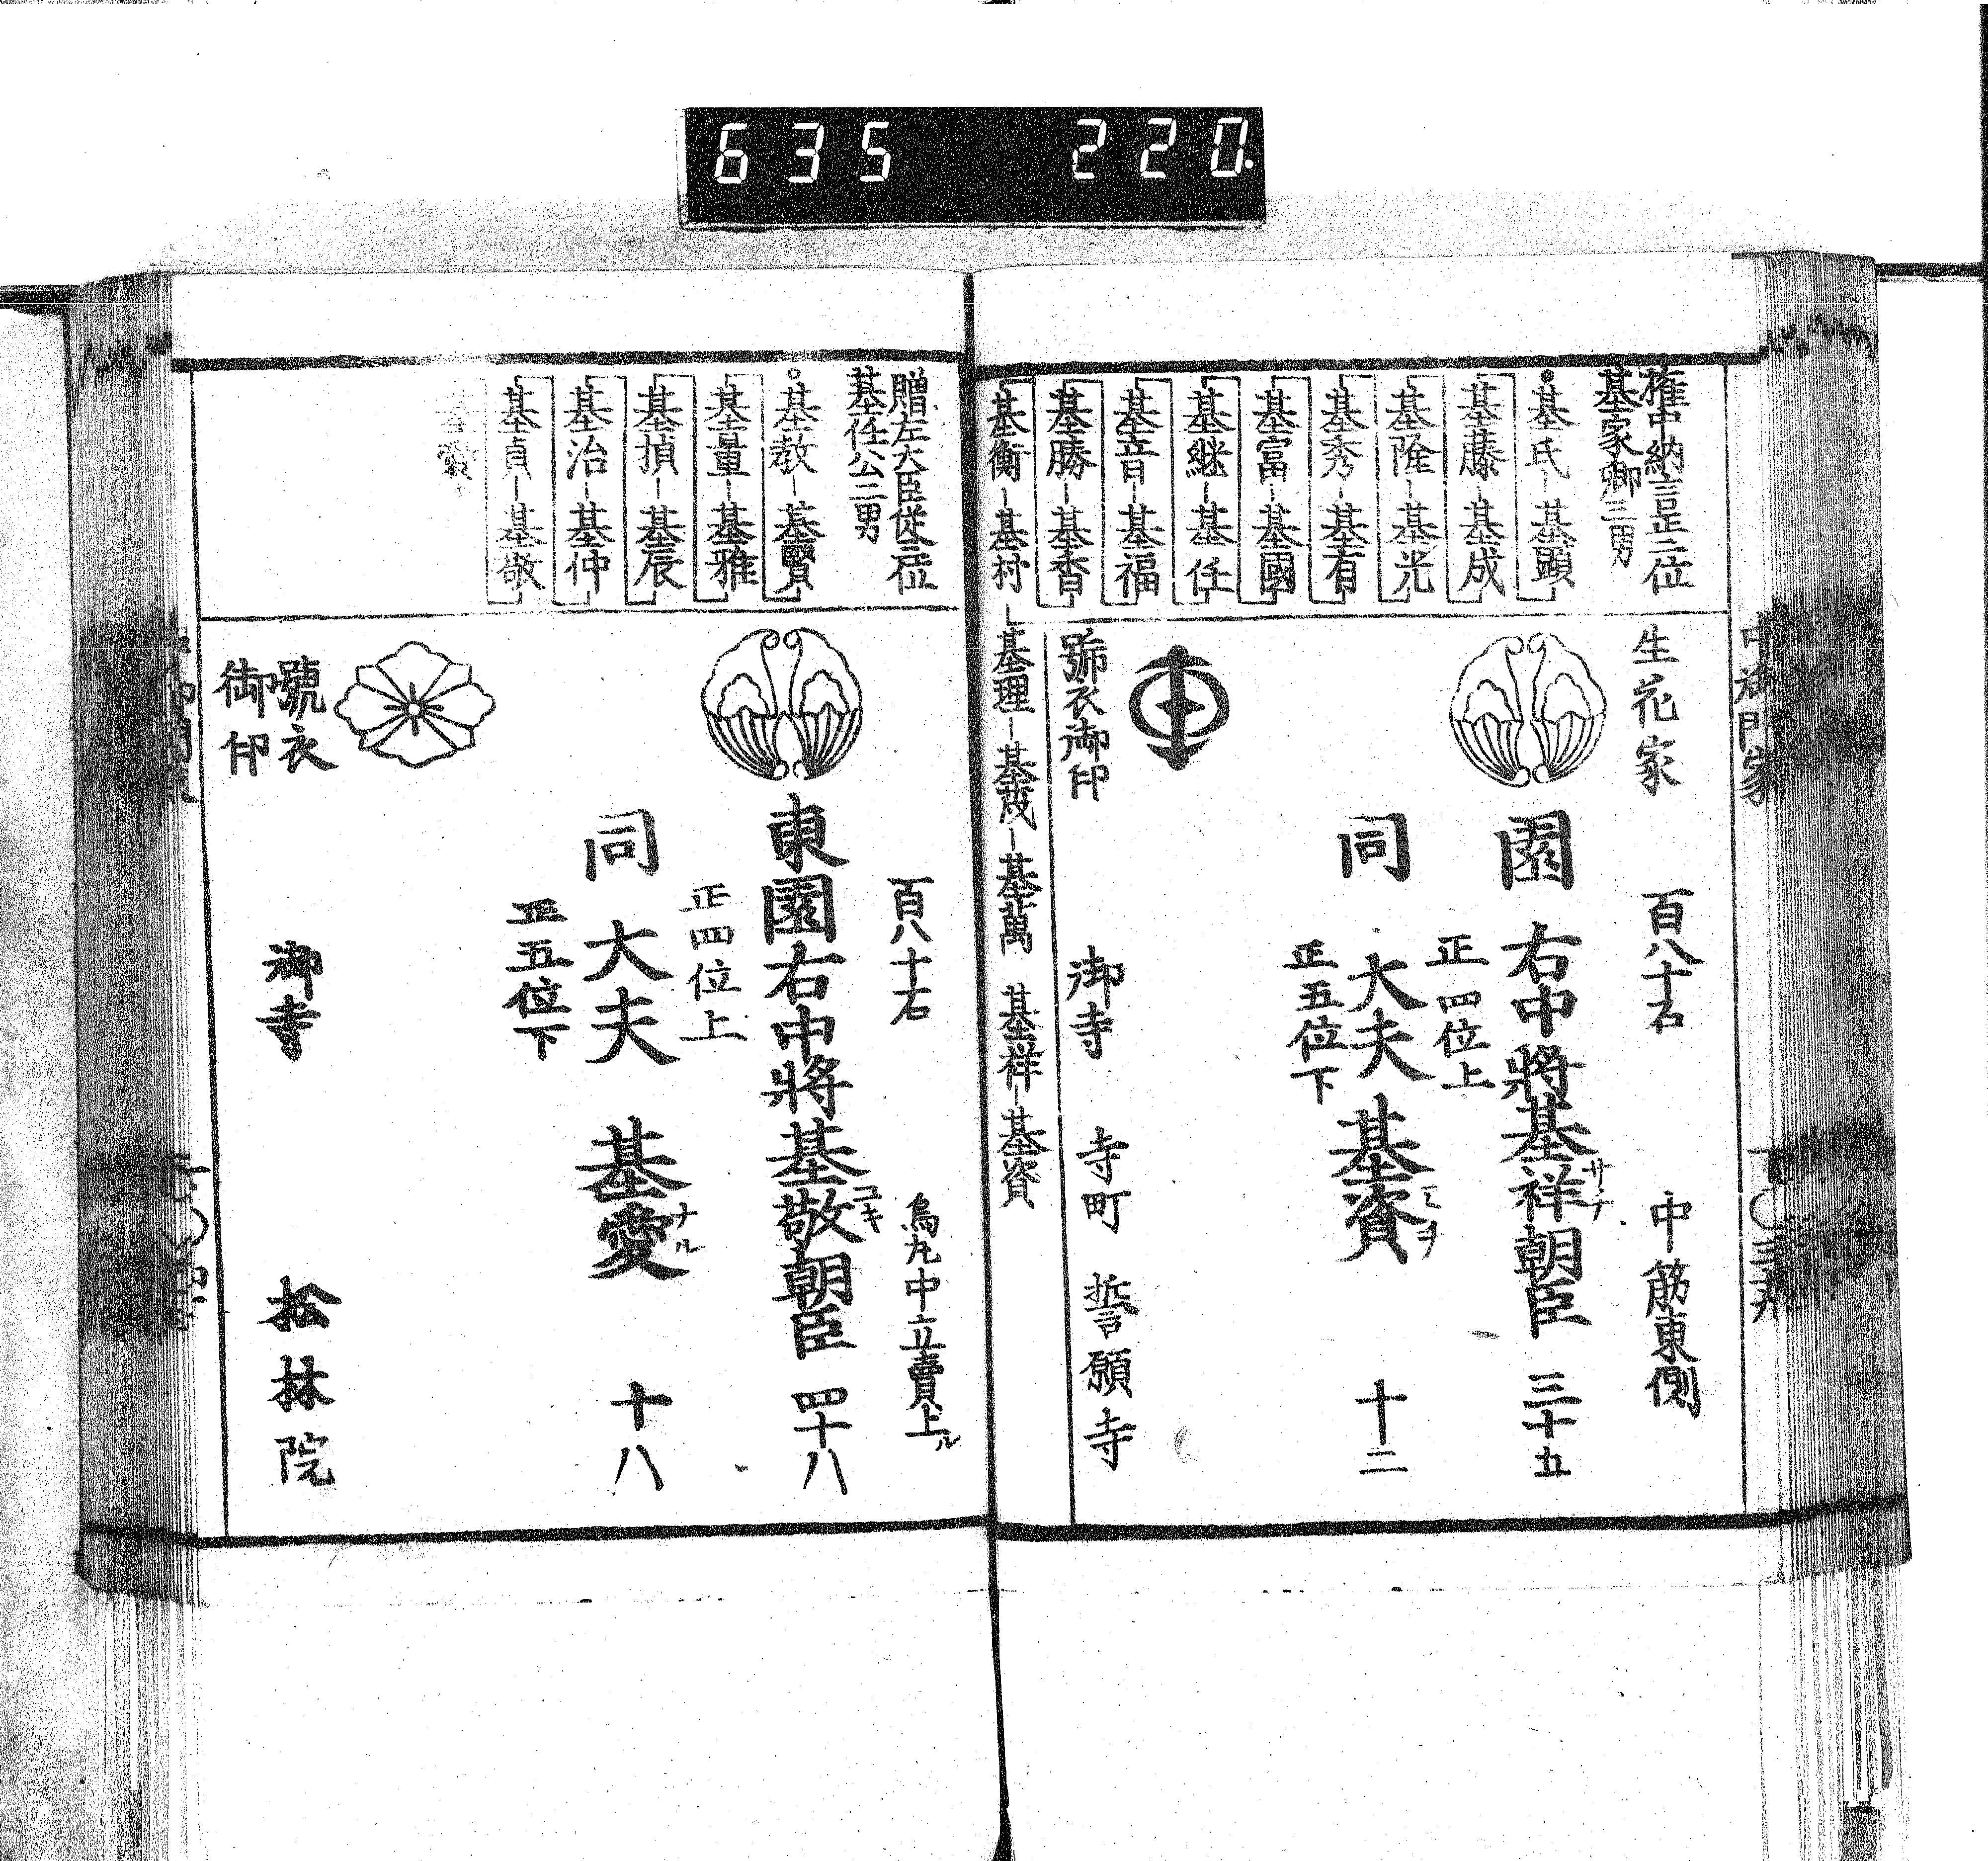 635 220.
権中納言正二位
基家卿三男
基氏－基顕
基藤－基成
基隆－基光
基秀－基有
基富－基國
基継－基任
基音－基福
基勝－基香
基衡－基村－基理－基茂－基萬 基祥－基資
生花家
百八十石
中筋東側
園 右中將基祥朝臣 三十五
サチ
正四位上
同 大夫 基資 十二
ミヲ
正五位下
號衣御印
御寺 寺町 誓願寺
贈左大臣従一位
基任公二男
基教－基賢
基量－基雅
基㨁－基辰
基治－基仲
基貞－基敬
基愛
百八十石
烏丸中立賣上ル
東園右中將基敬朝臣 四十八
ユキ
正四位上
同 大夫 基愛 十八
ナル
正五位下
號衣
御印
御寺 松林院